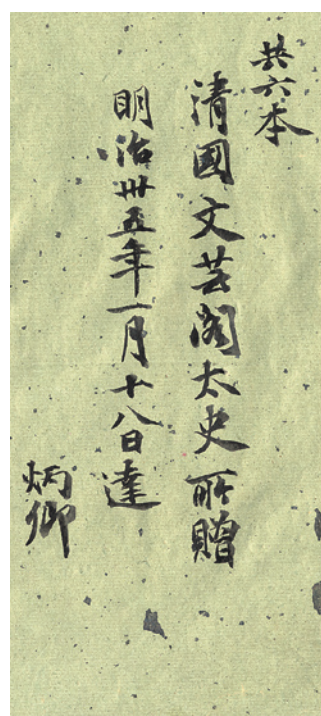 共六本
清國文芸閣太史所贈
明治卅五年一月十八日達
炳卿